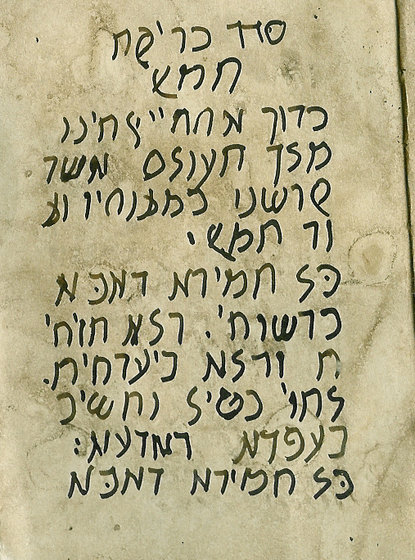 סדר בדיקת
חמץ
ברוך אתה יי אלהינו
מלך העולם אשר
קדשנו במצותיו וע
ור חמץ.
כל חמירא דאכא
ברשותי. דלא חזית
ה ודלא ביערתית.
להוי בטיל וחשיב
כעפרא דארעא:
כל חמירא דאכא